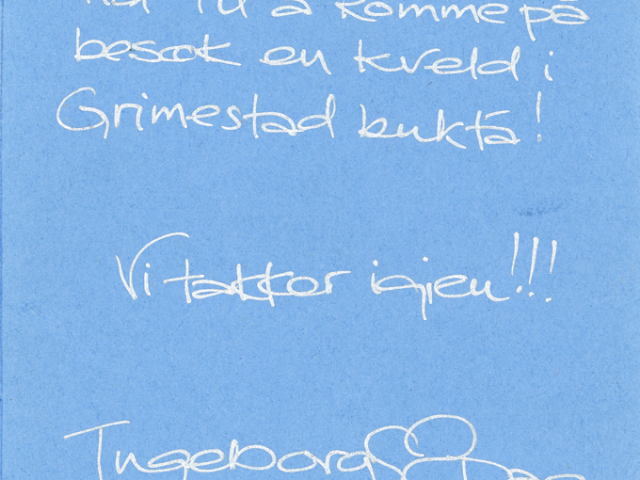 å komme på
besøk en kveld i
Grimestad bukta!
Vi takker igjen!!!
Ingeborg &